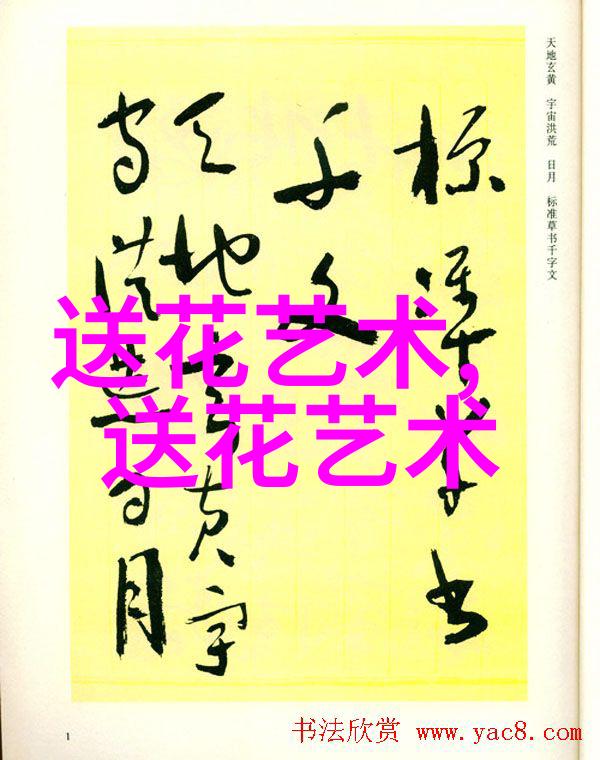 天地玄黄 宇宙洪荒 日月 标准草书千字文
标准草书
千文
天地玄黄宇
宙洪荒日月
送花艺术,
送花艺术
1
书法欣赏 www.yac8.com